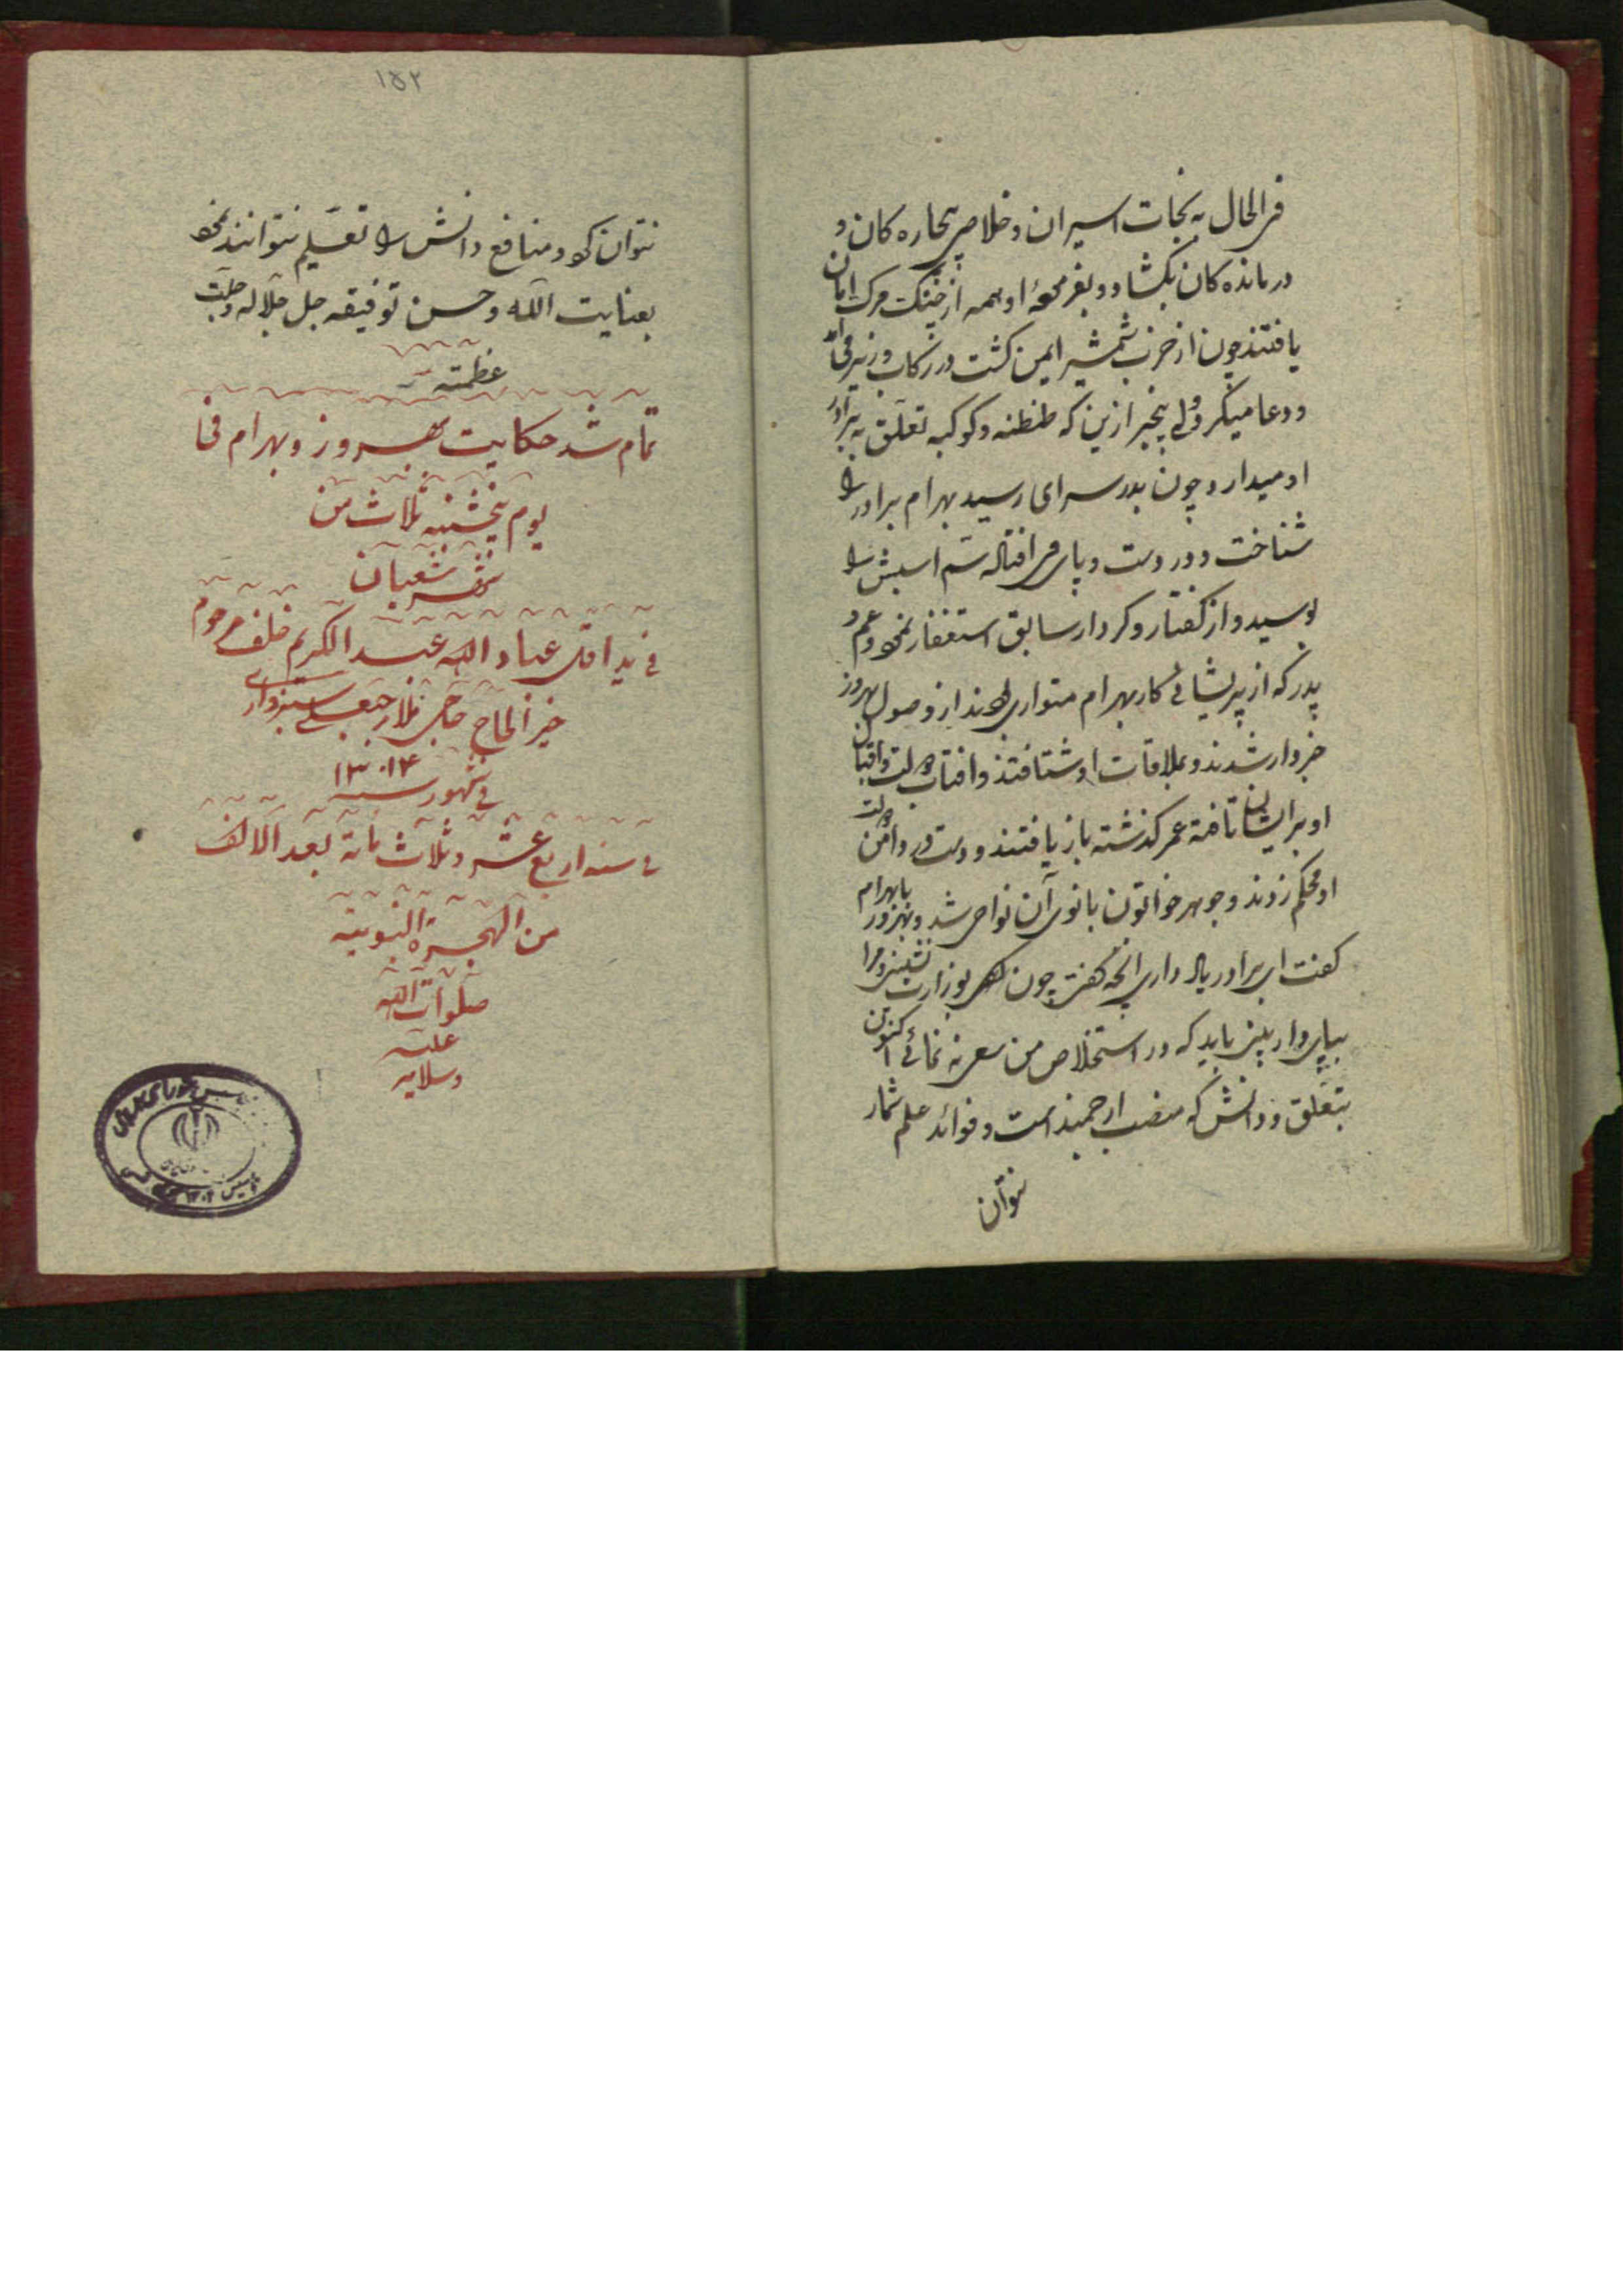 فی الحال به نجات اسیران و خلاص بیچاره کان و
درمانده کان بکشاد و بفرموده او همه از چنک مرک امان
یافتند چون از ضرب شمشیر ایمن کشت در رکاب وزیر می
و دعا میکرد ولی بیخبر ازین که طنطنه و کوکبه تعلق به برادر
او میدارد چون بدر سرای رسید بهرام برادر را
شناخت و در دست و پای وی افتاده سم اسبش را
بوسید و از کفتار و کردار سابق استغفار نمود و عم و
پدر که از پریشانی کار بهرام متواری بودند از وصول بهروز
خبردار شدند و بملاقات او شتافتند و افتاب دولت و اقبال
او بر ایشان تافته عمر کذشته باز یافتند و دست در دامن دولت
او محکم زدند و جوهر خواتون بانوی آن نواحی شد و بهروز با بهرام
کفت ای برادر یاد داری انچه کفتی چون بوزارت نشینی و مرا
بپای دار بینی باید که در استخلاص من سعی نه نمائی اکنون
بتعلق و دانش که منصب ارجمند است و فوائد علم شمار
نتوان
۱۵۲
نتوان کرد و منافع دانش را تعلیم نتوانند نمود
بعنایت الله و حسن توفیقه جل جلاله و جلت
عظمته
تمام شد حکایت بهروز و بهرام فی
یوم پنجشنبه ثلاث من
شهر شعبان
فی ید اقل عباد الله عبد الکریم خلف مرحوم
خیر الحاج حاجی ملا رجبعلی سبزواری
فی شهور سنه ۱۳۰۱۴
فی سنه اربع عشر و ثلاث مائة بعد الالف
من الهجرة النبویة
صلوات الله
علیه
و سلامه